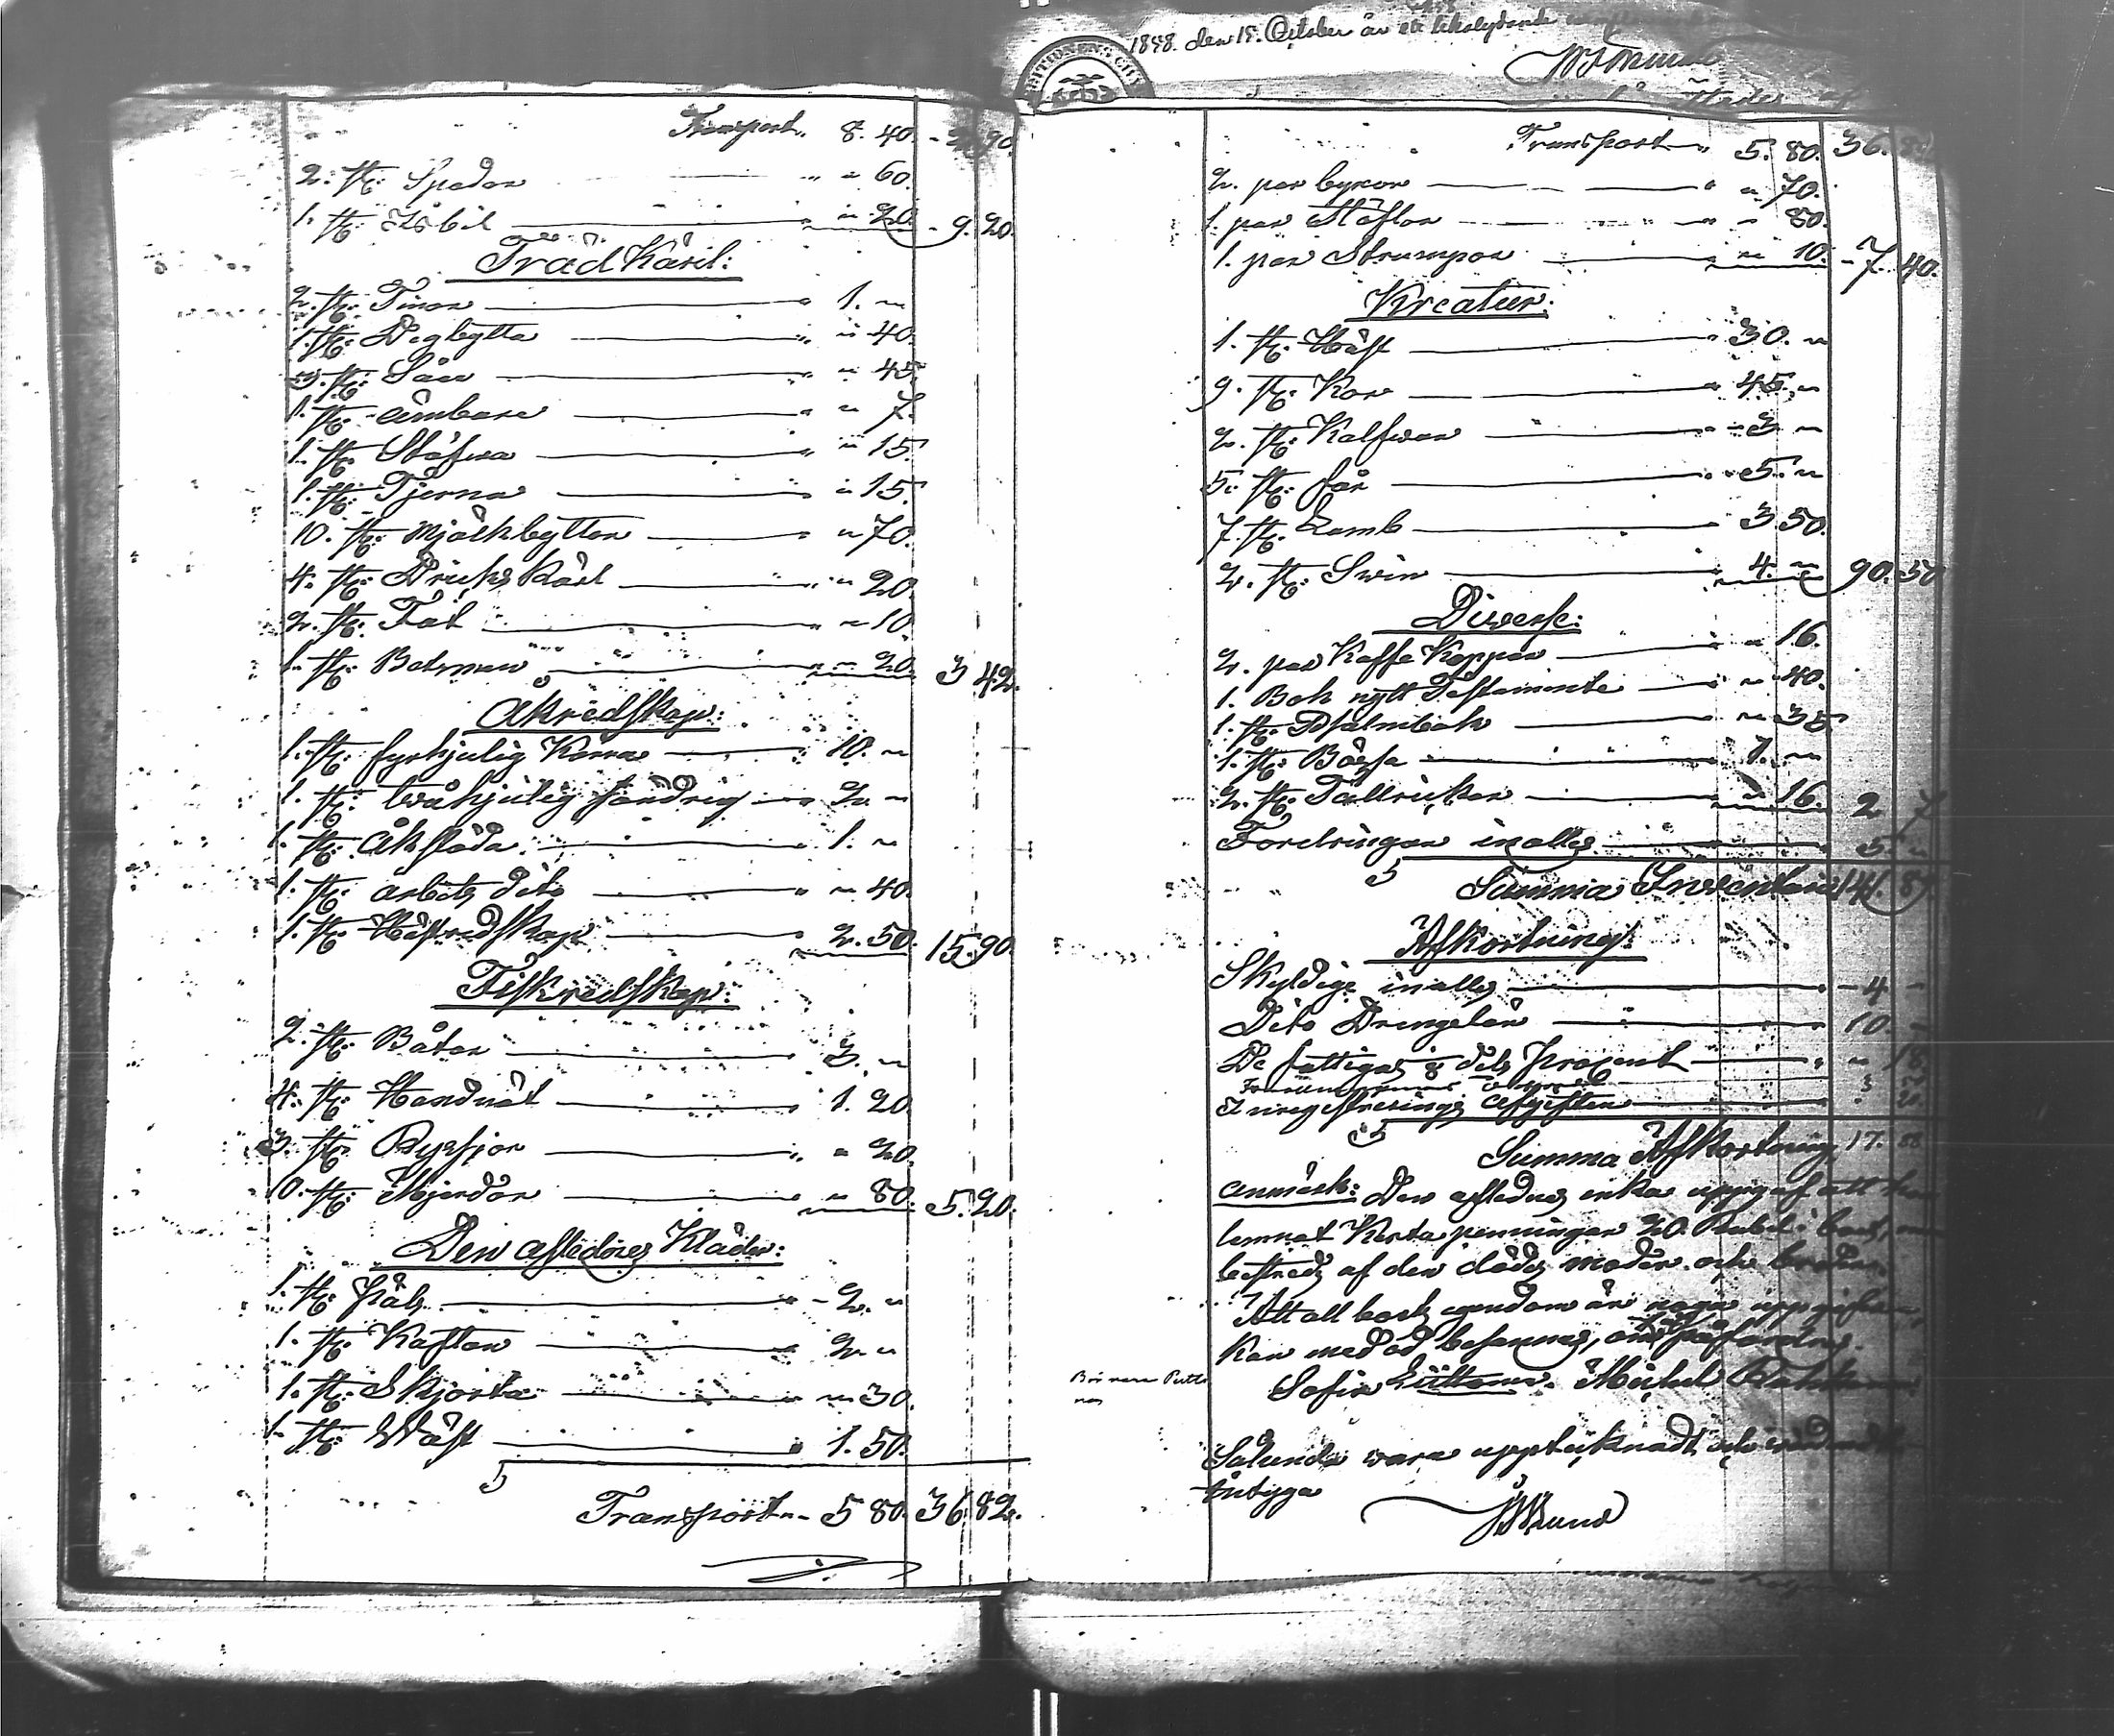 Transport 8. 40. 90.
2. st: Spadar " 60.
1. st: Isbil " 20. 9. 20.
Träd Käril:
2. st: Tinor 1. "
1. st: Degbytta " 40.
3. st: Såar " 45.
1. st: Ämbare " 7.
1. st: Stäfwa " 15.
1. st: Tjerna " 15.
10. st: Mjölkbyttor " 70.
4. st: Dricks Käril " 20.
2. st: Fat " 10.
1. st: Betsman " 20. 3 42.
Åkredskap:
1. st: fyrhjulig Kärra 10. "
1. st: twåhjulig 2. "
1. st: Åksläda 1. "
1. st: arbets dito " 40.
1. st: Hästredskap 2. 50. 15. 90.
Fiskredskap:
2. st: Båtar 3. "
4. st: Handnät 1. 20.
3. st: Ryssjor " 20.
0. st: Mjerdor " 80. 5. 20.
Den aflednes Kläder:
1. st: Päls 2. "
1. st: Kaftan 2. "
1. st: Skjorta " 30.
1. st: Wäst 1. 50.
Transport 5 80. 36. 82.
1848. den 15. October är ett likalydande
Transport 5. 80. 36. 82
2. par byxor " 70.
1. par Stöflor " 80.
1. par Strumpor " 10. 7. 40.
Kreatur:
1. st: Häst 30. "
9. st: Kor 45. "
2. st: Kalfwar 3 "
5. st: får 5. "
7. st: Lamb 3 50.
2. st: Swin 4. " 90. 50
Diverse:
2. par Kaffe Koppar " 16.
1. Bok nytt Testamente " 40.
1. st: Psalmbok " 35.
1. st: Bössa 1. "
2. st: Tallrickar " 16. 2 7
Fordringar inalles 5 "
Summa Inventarie 141. 89.
Afkortning
Skyldige inalles 4 "
Dito Drengelön 10 "
De fattigas 1/8 dels procent " 18
3
Inregistrerings afgiften
Summa Afkortning 17. 88
Anmärk: Den aflednes enka uppgaf att
lemnat Kosta penningar 20. Rubel
bestreds af den dödes moder och broder.
Att all bortz egendom är noga uppgifwen,
kan med ed besannas, om så
Sofia Michel
Sålunda wara upptecknadt och
intyga